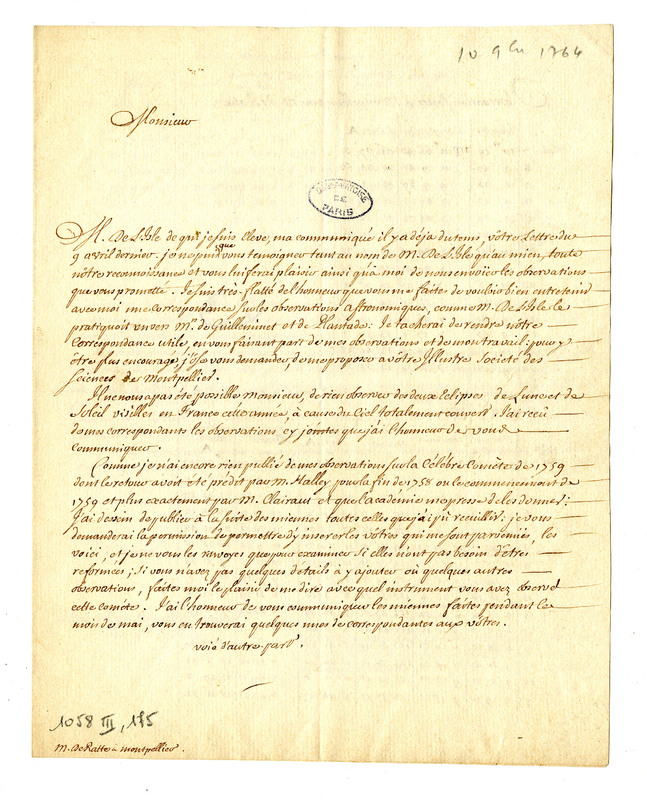 10 9bre 1764
Monsieur
OBSERVATOIRE
DE
PARIS
M. De L'Isle de qui je suis Eleve, ma communiqué il y a déja du tems, vôtre Lettre du
9 avril dernier. je ne puis que vous temoigner tant au nom de M. De L'Isle qu'au mien, toute
nôtre reconnoissance et vous lui ferai plaisir ainsi qu'à moi de nous envoier les observations
que vous promette. Je suis très-flatté de l'honneur que vous me faite de vouloir bien entretenir
avec moi une Correspondance sur les observations astronomiques, comme M. De L'Isle le
pratiquoit envers Mrs. de Guilleminet et de Plantade: Je tacherai de rendre nôtre
Correspondance utile, en vous faisant part de mes observations et de mon travail: pour y
être plus encouragé, j'ose vous demander, de me proposer a vôtre Illustre Societé des
Sciences de Montpellier.
Il ne nous a pas été possible Monsieur, de rien observer des deux Eclipses de Lune et de
Soleil visibles en France cette année, à cause du Ciel totalement couvert. J'ai reçu
de mes correspondants les observations cy jointes que j'ai l'honneur de vous
communiquer.
Comme je n'ai encore rien publié de mes observations sur la Célébre Comète de 1759
dont le retour avoit été prédit par M. Halley pour la fin de 1758 ou le commencement de
1759 et plus exactement par M. Clairaut et que l'académie me presse de les donner:
J'ai dessein de publier à la suite des miennes toutes celles que j'ai pû recuillir: je vous
demanderai la permission de permettre d'y inserer les vôtres qui me sont parvenües, les
voici, et je ne vous les envoyes que pour examiner si elles n'ont pas besoin d'êtres
reformées; Si vous n'avez pas quelques details à y ajouter où quelques autres
observations, faites moi le plaisir de me dire avec quel instrument vous avez observé
cette comète. J'ai l'honneur de vous communiquer les miennes faites pendant le
mois de mai, vous en trouverai quelques unes de correspondantes aux vôtres.
voié d'autre-part.
1058 III, 175
M. De Ratte à Montpellier.